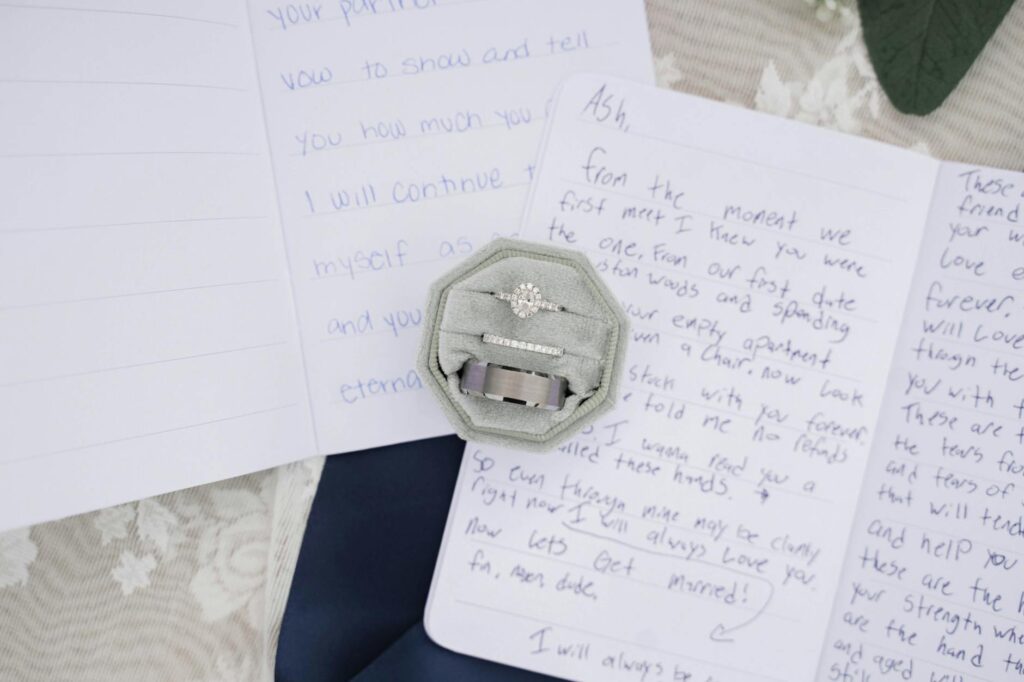 your partner
vow to show and tell
you how much you
I will continue
myself as
and you
eterna
Ash,
from the moment we
first meet I knew you were
the one. From our first date
woods and spending
your empty apartment
a chair, now look
stuck with you forever.
told me no refunds
I wanna read you a
called these hands.
So even through mine may be clamy
right now I will always love you.
now lets Get married!
fin, dude.
I will always be
These
friend
your w
love e
furever.
will love
throgh the
you with
These are t
the tears fro
and tears of
that will tend
and help you
these are the h
your strength whe
are the hand
and aged well
still